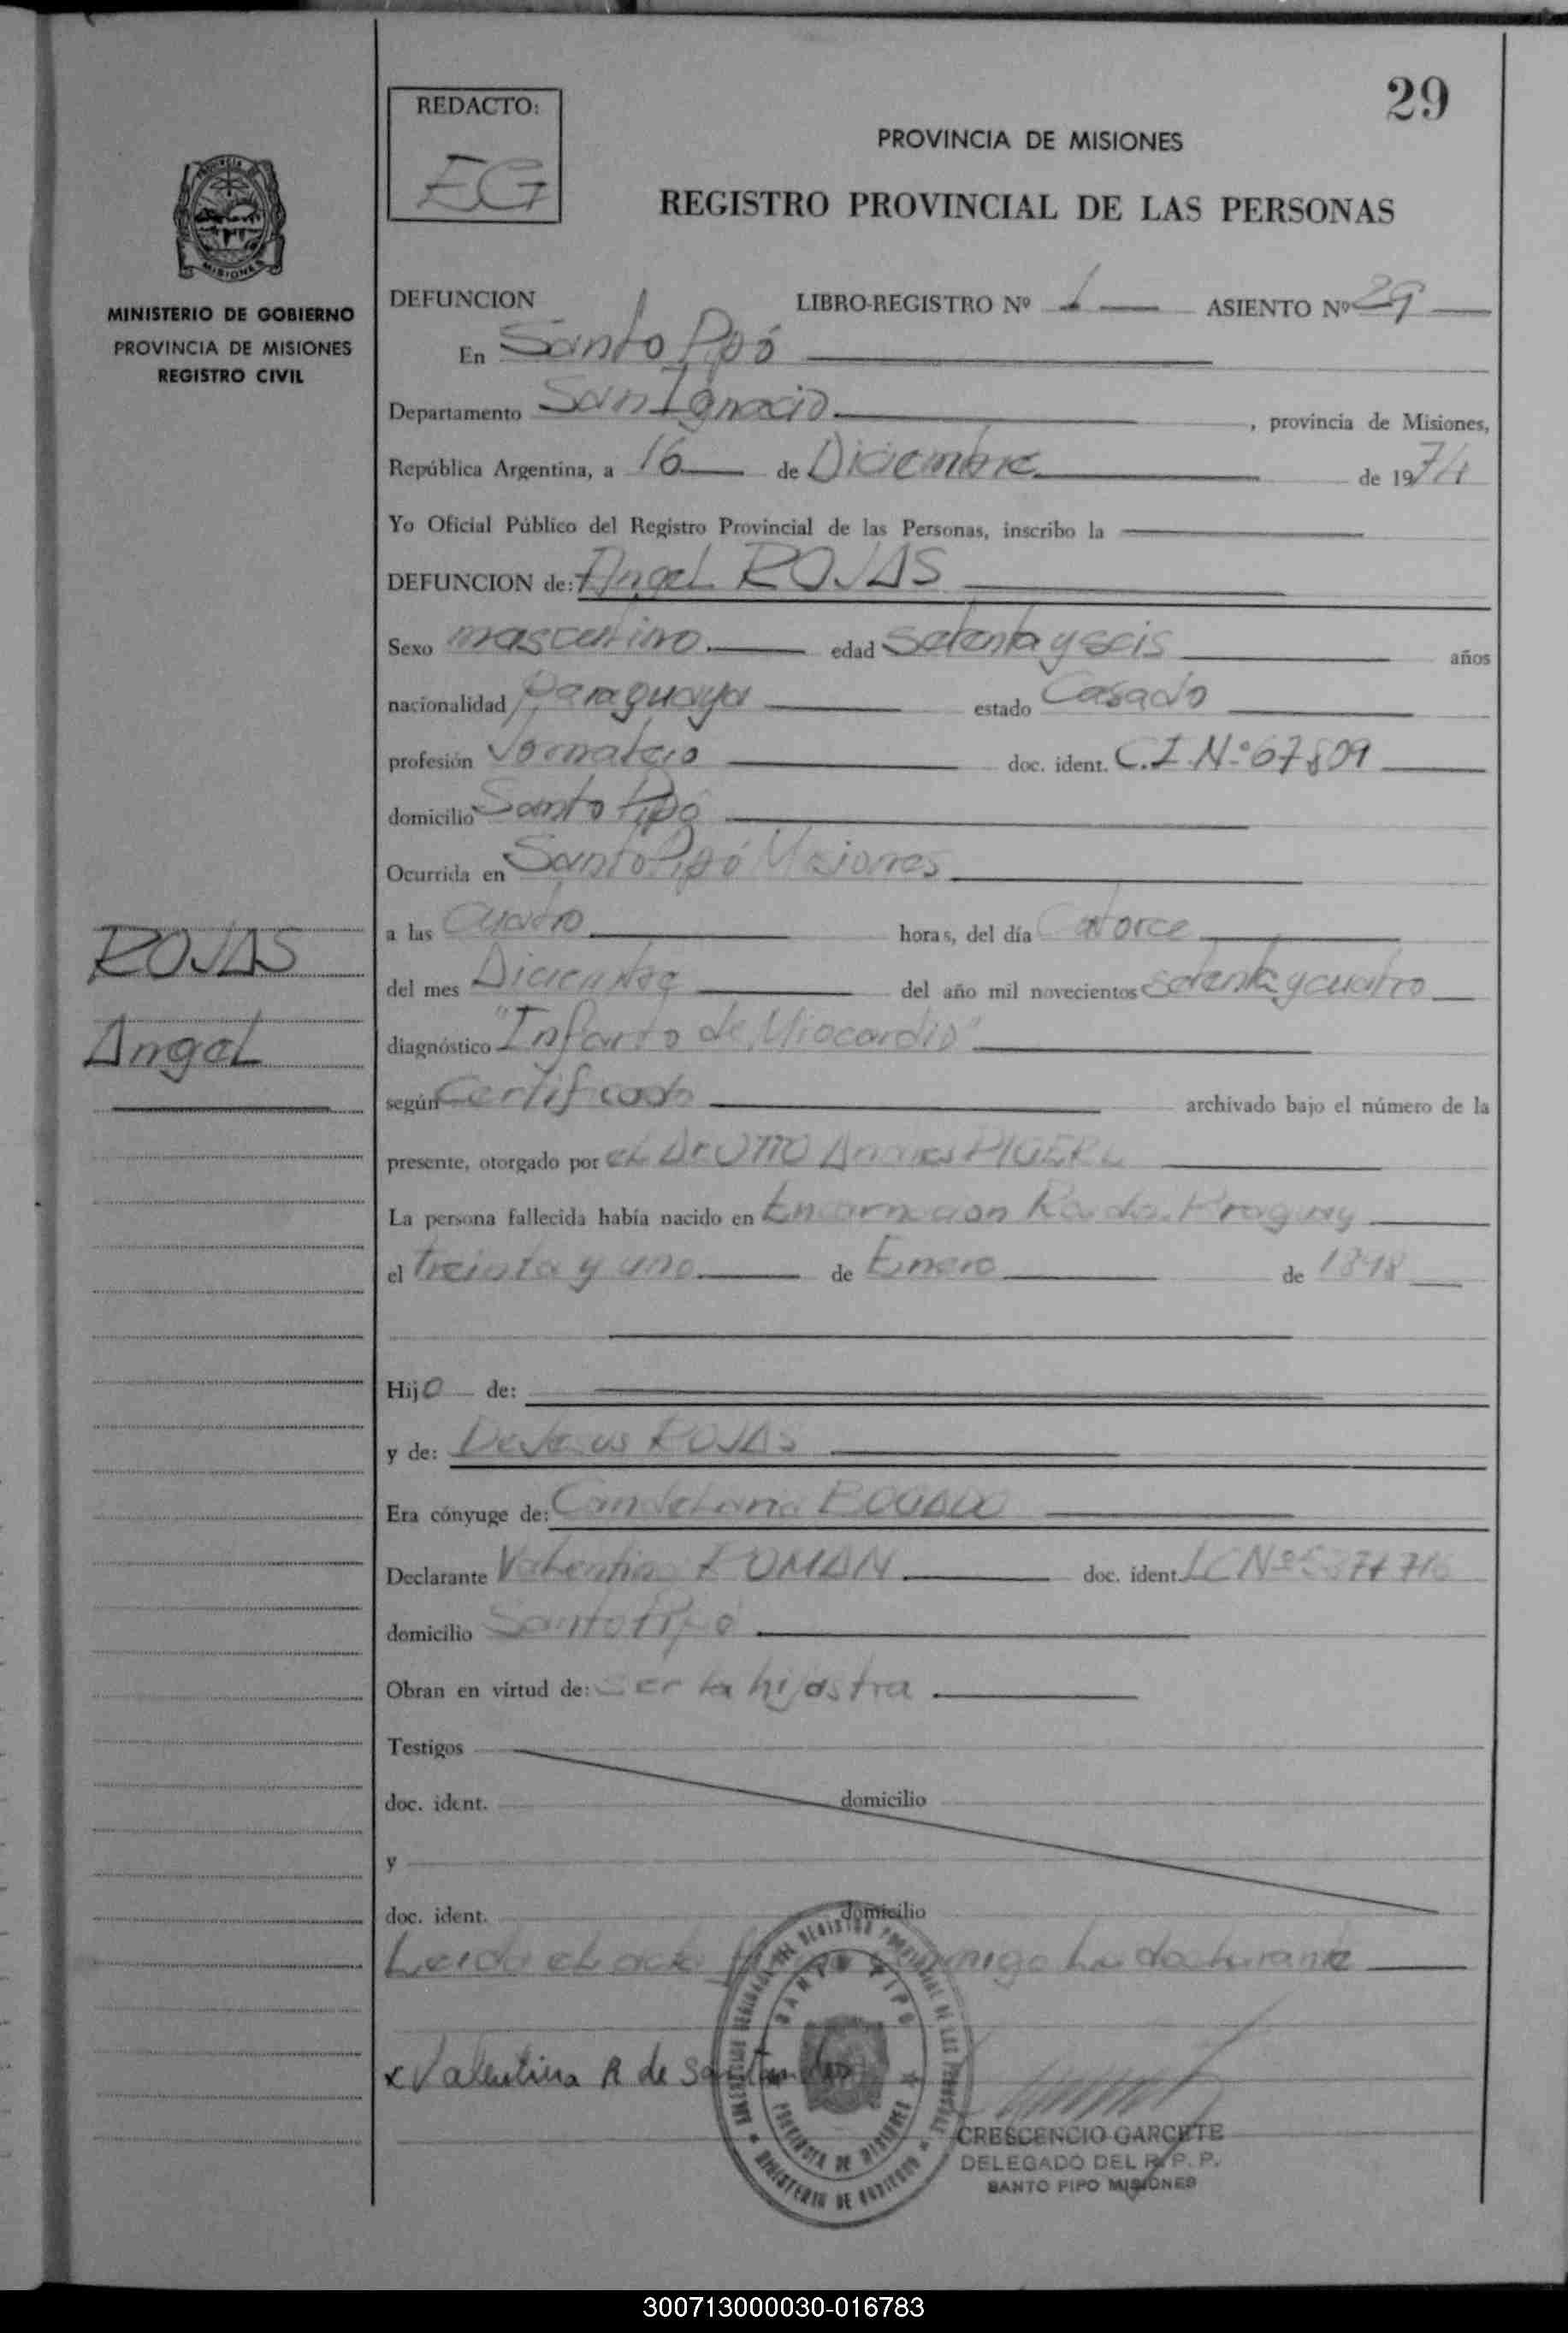 29
REDACTO:
EG
PROVINCIA DE MISIONES
REGISTRO PROVINCIAL DE LAS PERSONAS
MISIONES
MINISTERIO DE GOBIERNO
PROVINCIA DE MISIONES
REGISTRO CIVIL
DEFUNCION LIBRO-REGISTRO Nº 1 ASIENTO Nº 29
En Santo Pipó
Departamento San Ignacio, provincia de Misiones,
República Argentina, a 16 de Diciembre de 1974
Yo Oficial Público del Registro Provincial de las Personas, inscribo la
DEFUNCION de: Angel ROJAS
Sexo masculino edad setenta y seis años
nacionalidad Paraguaya estado Casado
profesión Jornalero doc. ident. C.I.Nº 67809
domicilio Santo Pipó
Ocurrida en Santo Pipó Misiones
a las cuatro horas, del día Catorce
del mes Diciembre del año mil novecientos setenta y cuatro
diagnóstico "Infarto de Miocardio"
según Certificado archivado bajo el número de la
presente, otorgado por el Dr OTTO
La persona fallecida había nacido en Encarnacion
el treinta y uno de Enero de 1898
Hijo de:
y de: ROJAS
Era cónyuge de: Candelaria BOGADO
Declarante Valentina ROMAN doc. ident. LC Nº
domicilio Santo Pipó
Obran en virtud de: ser la hijastra
Testigos
doc. ident. domicilio
y
doc. ident. domicilio
Leida el acta conmigo la declarante
x Valentina R de
ROJAS
Angel
SANTO PIPO
PROVINCIA DE MISIONES
MINISTERIO DE GOBIERNO
CRESCENCIO GARCETE
DELEGADO DEL R. P. P.
SANTO PIPO MISIONES
300713000030-016783